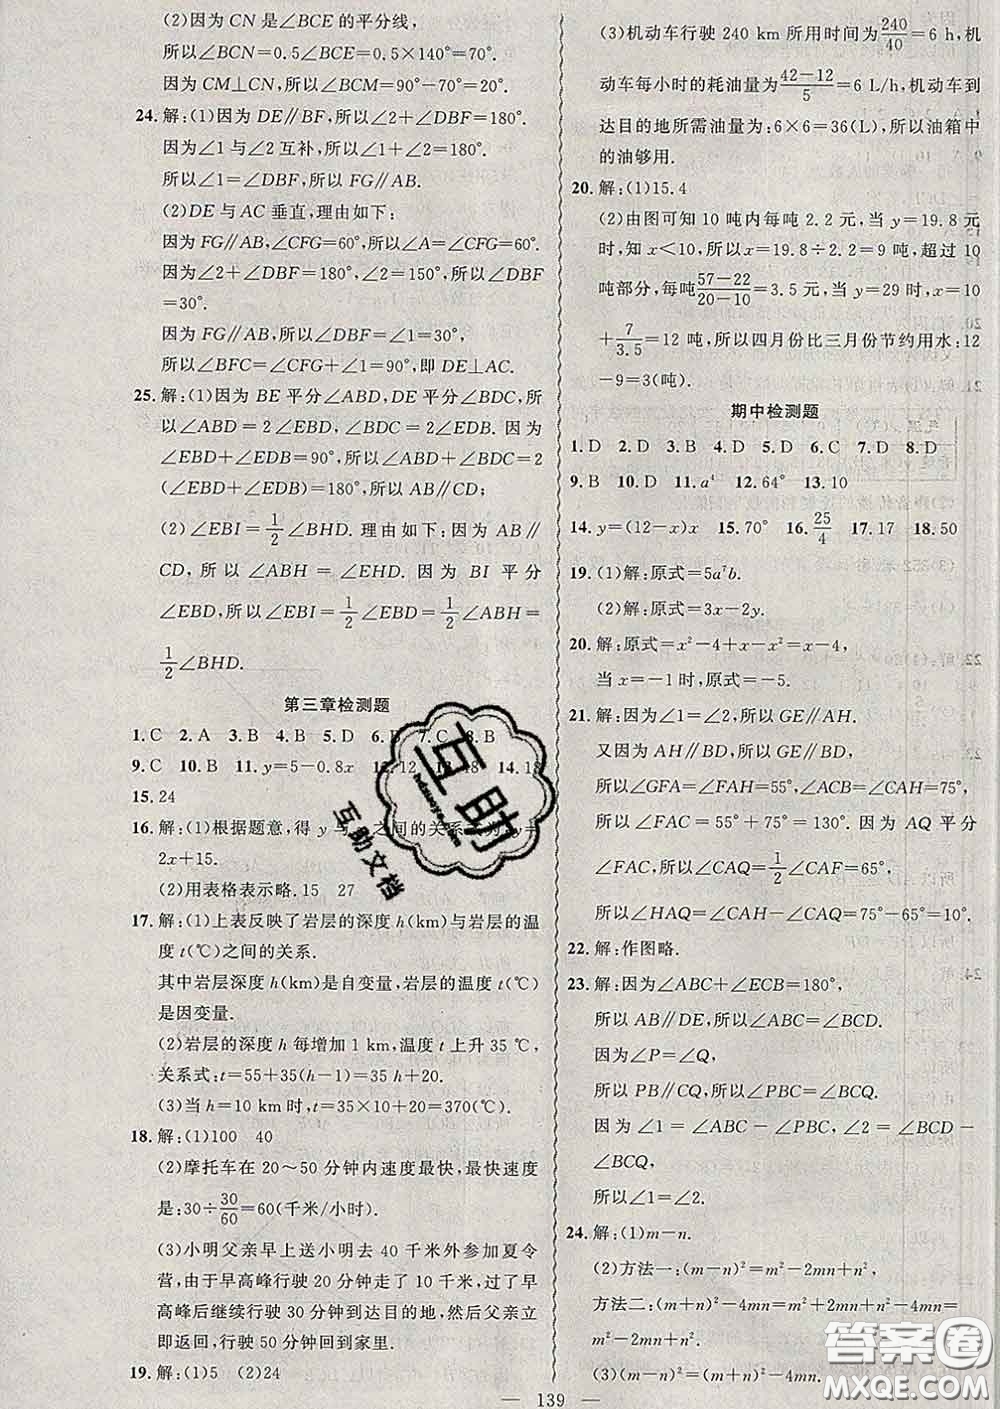 (2)因为 CN 是∠BCE 的平分线,
所以∠BCN=0.5∠BCE=0.5×140°=70°.
因为 CM⊥CN,所以∠BCM=90°-70°=20°.
24.解:(1)因为 DE∥BF,所以∠2+∠DBF=180°.
因为∠1 与∠2 互补,所以∠1+∠2=180°.
所以∠1=∠DBF,所以 FG∥AB.
(2)DE 与 AC 垂直,理由如下:
因为 FG∥AB,∠CFG=60°,所以∠A=∠CFG=60°.
因为∠2+∠DBF=180°,∠2=150°,所以∠DBF
=30°.
因为 FG∥AB,所以∠DBF=∠1=30°.
所以∠BFC=∠CFG+∠1=90°,即 DE⊥AC.
25.解:(1)因为 BE 平分∠ABD,DE 平分∠BDC,所
以∠ABD=2∠EBD,∠BDC=2∠EDB. 因为
∠EBD+∠EDB=90°,所以∠ABD+∠BDC=2
(∠EBD+∠EDB)=180°,所以 AB∥CD;
(2)∠EBI=1/2∠BHD. 理由如下:因为 AB∥
CD,所以∠ABH=∠EHD. 因为 BI 平分
∠EBD,所以∠EBI=1/2∠EBD=1/2∠ABH=
1/2∠BHD.
第三章检测题
1.C 2.A 3.B 4.B 5.D 6.B 7.C 8.B
9.C 10.B 11.y=5-0.8x 12.12 13.48 14.18
15.24
16.解:(1)根据题意,得 y 与 之间的关系式为 y=
2x+15.
(2)用表格表示略.15 27
17.解:(1)上表反映了岩层的深度 h(km)与岩层的温
度 t(℃)之间的关系.
其中岩层深度 h(km)是自变量,岩层的温度 t(℃)
是因变量.
(2)岩层的深度 h 每增加 1 km,温度 t 上升 35 ℃,
关系式:t=55+35(h-1)=35h+20.
(3)当 h=10 km 时,t=35×10+20=370(℃).
18.解:(1)100 40
(2)摩托车在 20～50 分钟内速度最快,最快速度
是:30÷30/60=60(千米/小时).
(3)小明父亲早上送小明去 40 千米外参加夏令
营,由于早高峰行驶 20 分钟走了 10 千米,过了早
高峰后继续行驶 30 分钟到达目的地,然后父亲立
即返回,行驶 50 分钟回到家里.
19.解:(1)5 (2)24
(3)机动车行驶 240 km 所用时间为240/40=6 h,机
动车每小时的耗油量为42-12/5=6 L/h,机动车到
达目的地所需油量为:6×6=36(L),所以油箱中
的油够用.
20.解:(1)15.4
(2)由图可知 10 吨内每吨 2.2 元,当 y=19.8 元
时,知 x<10,所以 x=19.8÷2.2=9 吨,超过 10
吨部分,每吨57-22/20-10=3.5 元,当 y=29 时,x=10
+7/3.5=12 吨,所以四月份比三月份节约用水:12
-9=3(吨).
期中检测题
1.D 2.D 3.D 4.D 5.D 6.C 7.D 8.D
9.B 10.D 11.a⁴ 12.64° 13.10
14.y=(12-x)x 15.70° 16.25/4 17.17 18.50
19.(1)解:原式=5a⁷b.
(2)解:原式=3x-2y.
20.解:原式=x²-4+x-x²=x-4,
当 x=-1 时,原式=-5.
21.解:因为∠1=∠2,所以 GE∥AH.
又因为 AH∥BD,所以 GE∥BD,
所以∠GFA=∠FAH=55°,∠BCA=∠CAH=75°,
所以∠FAC=55°+75°=130°. 因为 AQ 平分
∠FAC,所以∠CAQ=1/2∠CAF=65°,
所以∠HAQ=∠CAH-∠CAQ=75°-65°=10°.
22.解:作图略.
23.解:因为∠ABC+∠ECB=180°,
所以 AB∥DE,所以∠ABC=∠BCD.
因为∠P=∠Q,
所以 PB∥CQ,所以∠PBC=∠BCQ.
因为∠1=∠ABC-∠PBC,∠2=∠BCD-
∠BCQ,
所以∠1=∠2.
24.解:(1)m-n.
(2)方法一:(m-n)²=m²-2mn+n²,
方法二:(m+n)²-4mn=m²+2mn+n²-4mn=
m²-2mn+n².
(3)(m+n)²-4mn=(m-n)²
139
互助
互助文档
答案圈
MXQE.COM